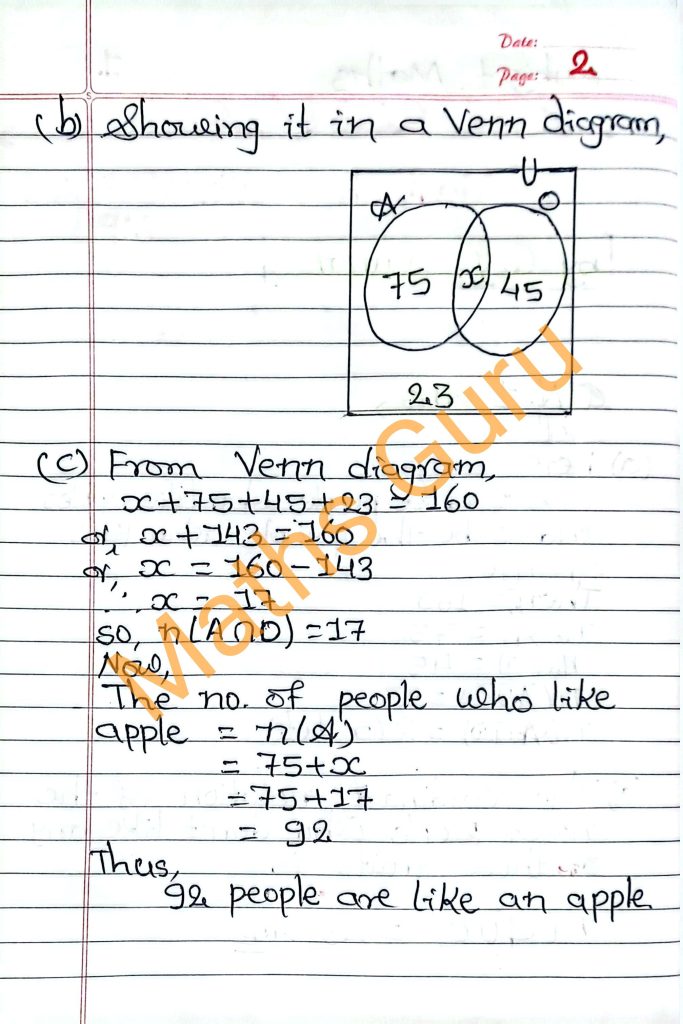 Date:
Page: 2
(b) Showing it in a Venn diagram,
U
A O
75 x 45
23
(c) From Venn diagram,
x+75+45+23 = 160
or, x+143 = 160
or, x = 160-143
∴ x = 17
so, n(A∩O) = 17
Now,
The no. of people who like
apple = n(A)
= 75+x
= 75+17
= 92
Thus,
92 people are like an apple
Maths Guru